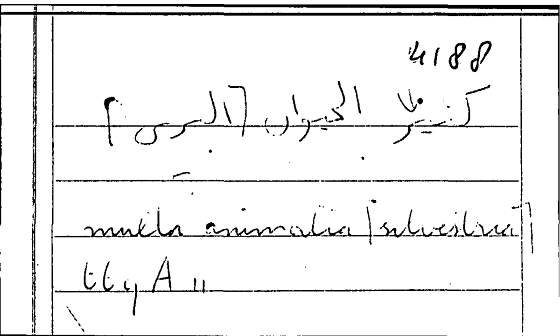 4188
كثير الحيوان [البري]
multa animalia [silvestria]
A 11